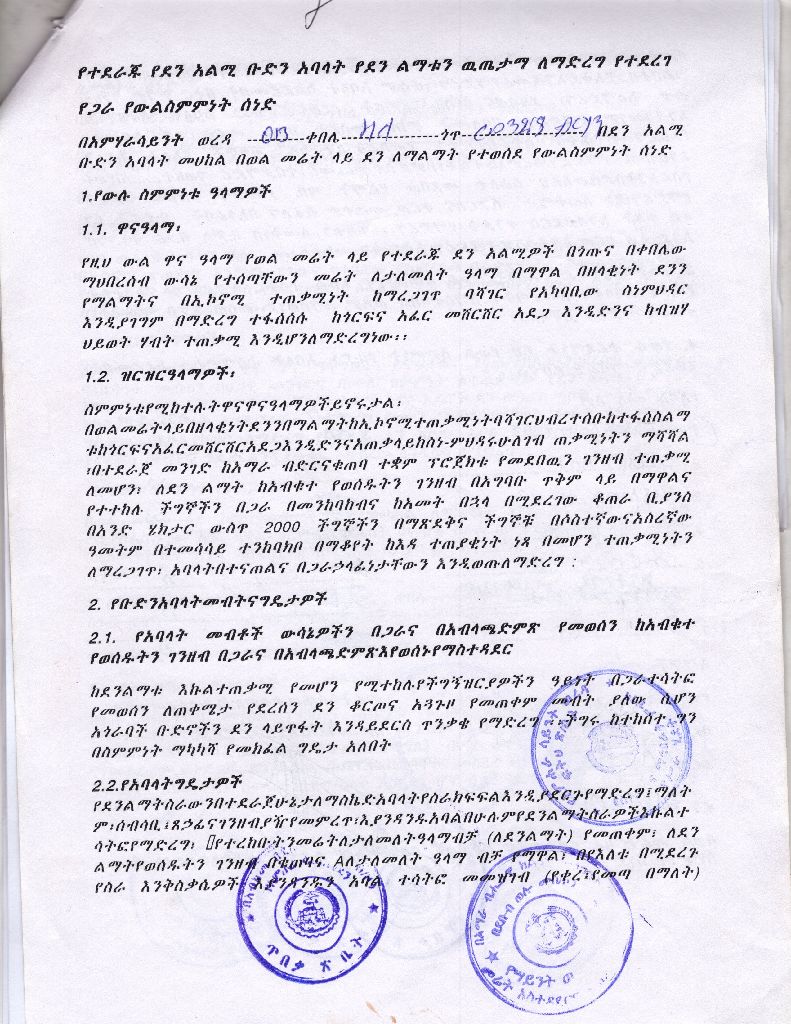 የተደራጁ የደን አልሚ ቡድን አባላት የደን ልማቱን ዉጤታማ ለማድረግ የተደረገ
የጋራ የውልስምምነት ሰነድ
በአምሃራሳይንት ወረዳ ቀበሌ ጎጥ በደን አልሚ
ቡድን አባላት መሀከል በወል መሬት ላይ ደን ለማልማት የተወሰደ የውልስምምነት ሰነድ
1.የውሉ ስምምነቱ ዓላማዎች
1.1. ዋናዓላማ፡
የዚህ ውል ዋና ዓላማ የወል መሬት ላይ የተደራጁ ደን አልሚዎች በጎጡና በቀበሌው
ማህበረሰብ ውሳኔ የተሰጣቸውን መሬት ለታለመለት ዓላማ በማዋል በዘላቂነት ደንን
የማልማትና በኢኮኖሚ ተጠቃሚነት ከማረጋገጥ ባሻገር የአካባቢው ስነምህዳር
እንዲያገግም በማድረግ ተፋሰሰሱ ከጎርፍና አፈር መሸርሸር አደጋ እንዲድንና ከብዝሃ
ህይወት ሃብት ተጠቃሚ እንዲሆንለማድረግነው፡፡
1.2. ዝርዝርዓላማዎች፡
ስምምነቱየሚከተሉትዋናዋናዓላማዎችይኖሩታል፡
በወልመሬትላይበዘላቂነትደንንበማልማትከኢኮኖሚተጠቃሚነትባሻገርህብረተሰቡከተፋሰስልማ
ቱከጎርፍናአፈርመሸርሸርአደጋእንዲድንናአጠቃላይከስነ-ምህዳሩሁለገብ ጠቃሚነትን ማሻሻል
፡በተደራጀ መንገድ ከአማራ ብድርናቁጠባ ተቋም ፕሮጀክቱ የመደበዉን ገንዘብ ተጠቃሚ
ለመሆን፤ ለደን ልማት ከአብቁተ የወሰዱትን ገንዘብ በአግባቡ ጥቅም ላይ በማዋልና
የተተከሉ ችግኞችን በጋራ በመንከባከብና ከአመት በኋላ በሚደረገው ቆጠራ ቢያንስ
በአንድ ሂክታር ውስጥ 2000 ችግኞችን በማጽደቅና ችግኞቹ በሶስተኛውናአስረኛው
ዓመትም በተመሳሳይ ተንከባክቦ በማቆየት ከእዳ ተጠያቂነት ነጻ በመሆን ተጠቃሚነትን
ለማረጋገጥ፤ አባላትበተናጠልና በጋራኃላፊነታቸውን እንዲወጡለማድረግ ፡
2. የቡድንአባላትመብትናግዴታዎች
2.1. የአባላት መብቶች ውሳኔዎችን በጋራና በአብላጫድምጽ የመወሰን ከአብቁተ
የወሰዱትን ገንዘብ በጋራና በአብላጫድምጽእየወሰኑየማስተዳደር
ከደንልማቱ እኩልተጠቃሚ የመሆን የሚተከሉየችግኝዝርያዎችን ዓይነት በጋራተሳትፎ
የመወሰን ለጠቀሜታ የደረሰን ደን ቆርጦና አጓጉዞ የመጠቀም መብት ያለው ሲሆን
አጎራባች ቡድኖችን ደን ላይጥፋት እንዳይደርስ ጥንቃቄ የማድረግ ችግሩ ከተከሰተ ግን
በስምምነት ማካካሻ የመክፈል ግዴታ አለበት
2.2.የአባላትግዴታዎች
የደንልማትስራውንበተደራጀሁኔታለማስኬድአባላትየስራክፍፍልእንዲያደርጉየማድረግ፤ማለት
ም፡ሰብሳቢ፤ጸኃፊናገንዘብያዥየመምረጥ፤እያንዳንዱአባልበሁሉምየደንልማትስራዎችእኩልተ
ሳትፎየማድረግ፤ የተረከቡትንመሬትለታለመለትዓላማብቻ (ለደንልማት) የመጠቀም፤ ለደን
ልማትየወሰዱትን ገንዘብ በቁጠባና Aለታለመለት ዓላማ ብቻ የማዋል፤ በየእለቱ በሚደረጉ
የስራ እንቅስቃሴዎች እያንዳንዱን አባል ተሳትፎ መመዝገብ (የቀረ፤የመጣ በማለት)
ጥበቃ ጽ ቤት